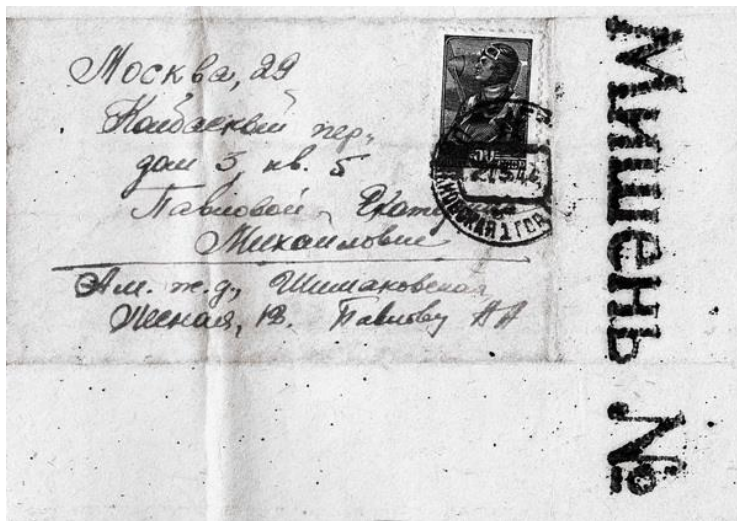 Москва, 29
Колбаский пер,
дом 3, кв. 5
Павловой Екатерине
Михайловне
Ам. ж.д., Шимановская,
Лесная, 12. Павлову АА
Мишень №